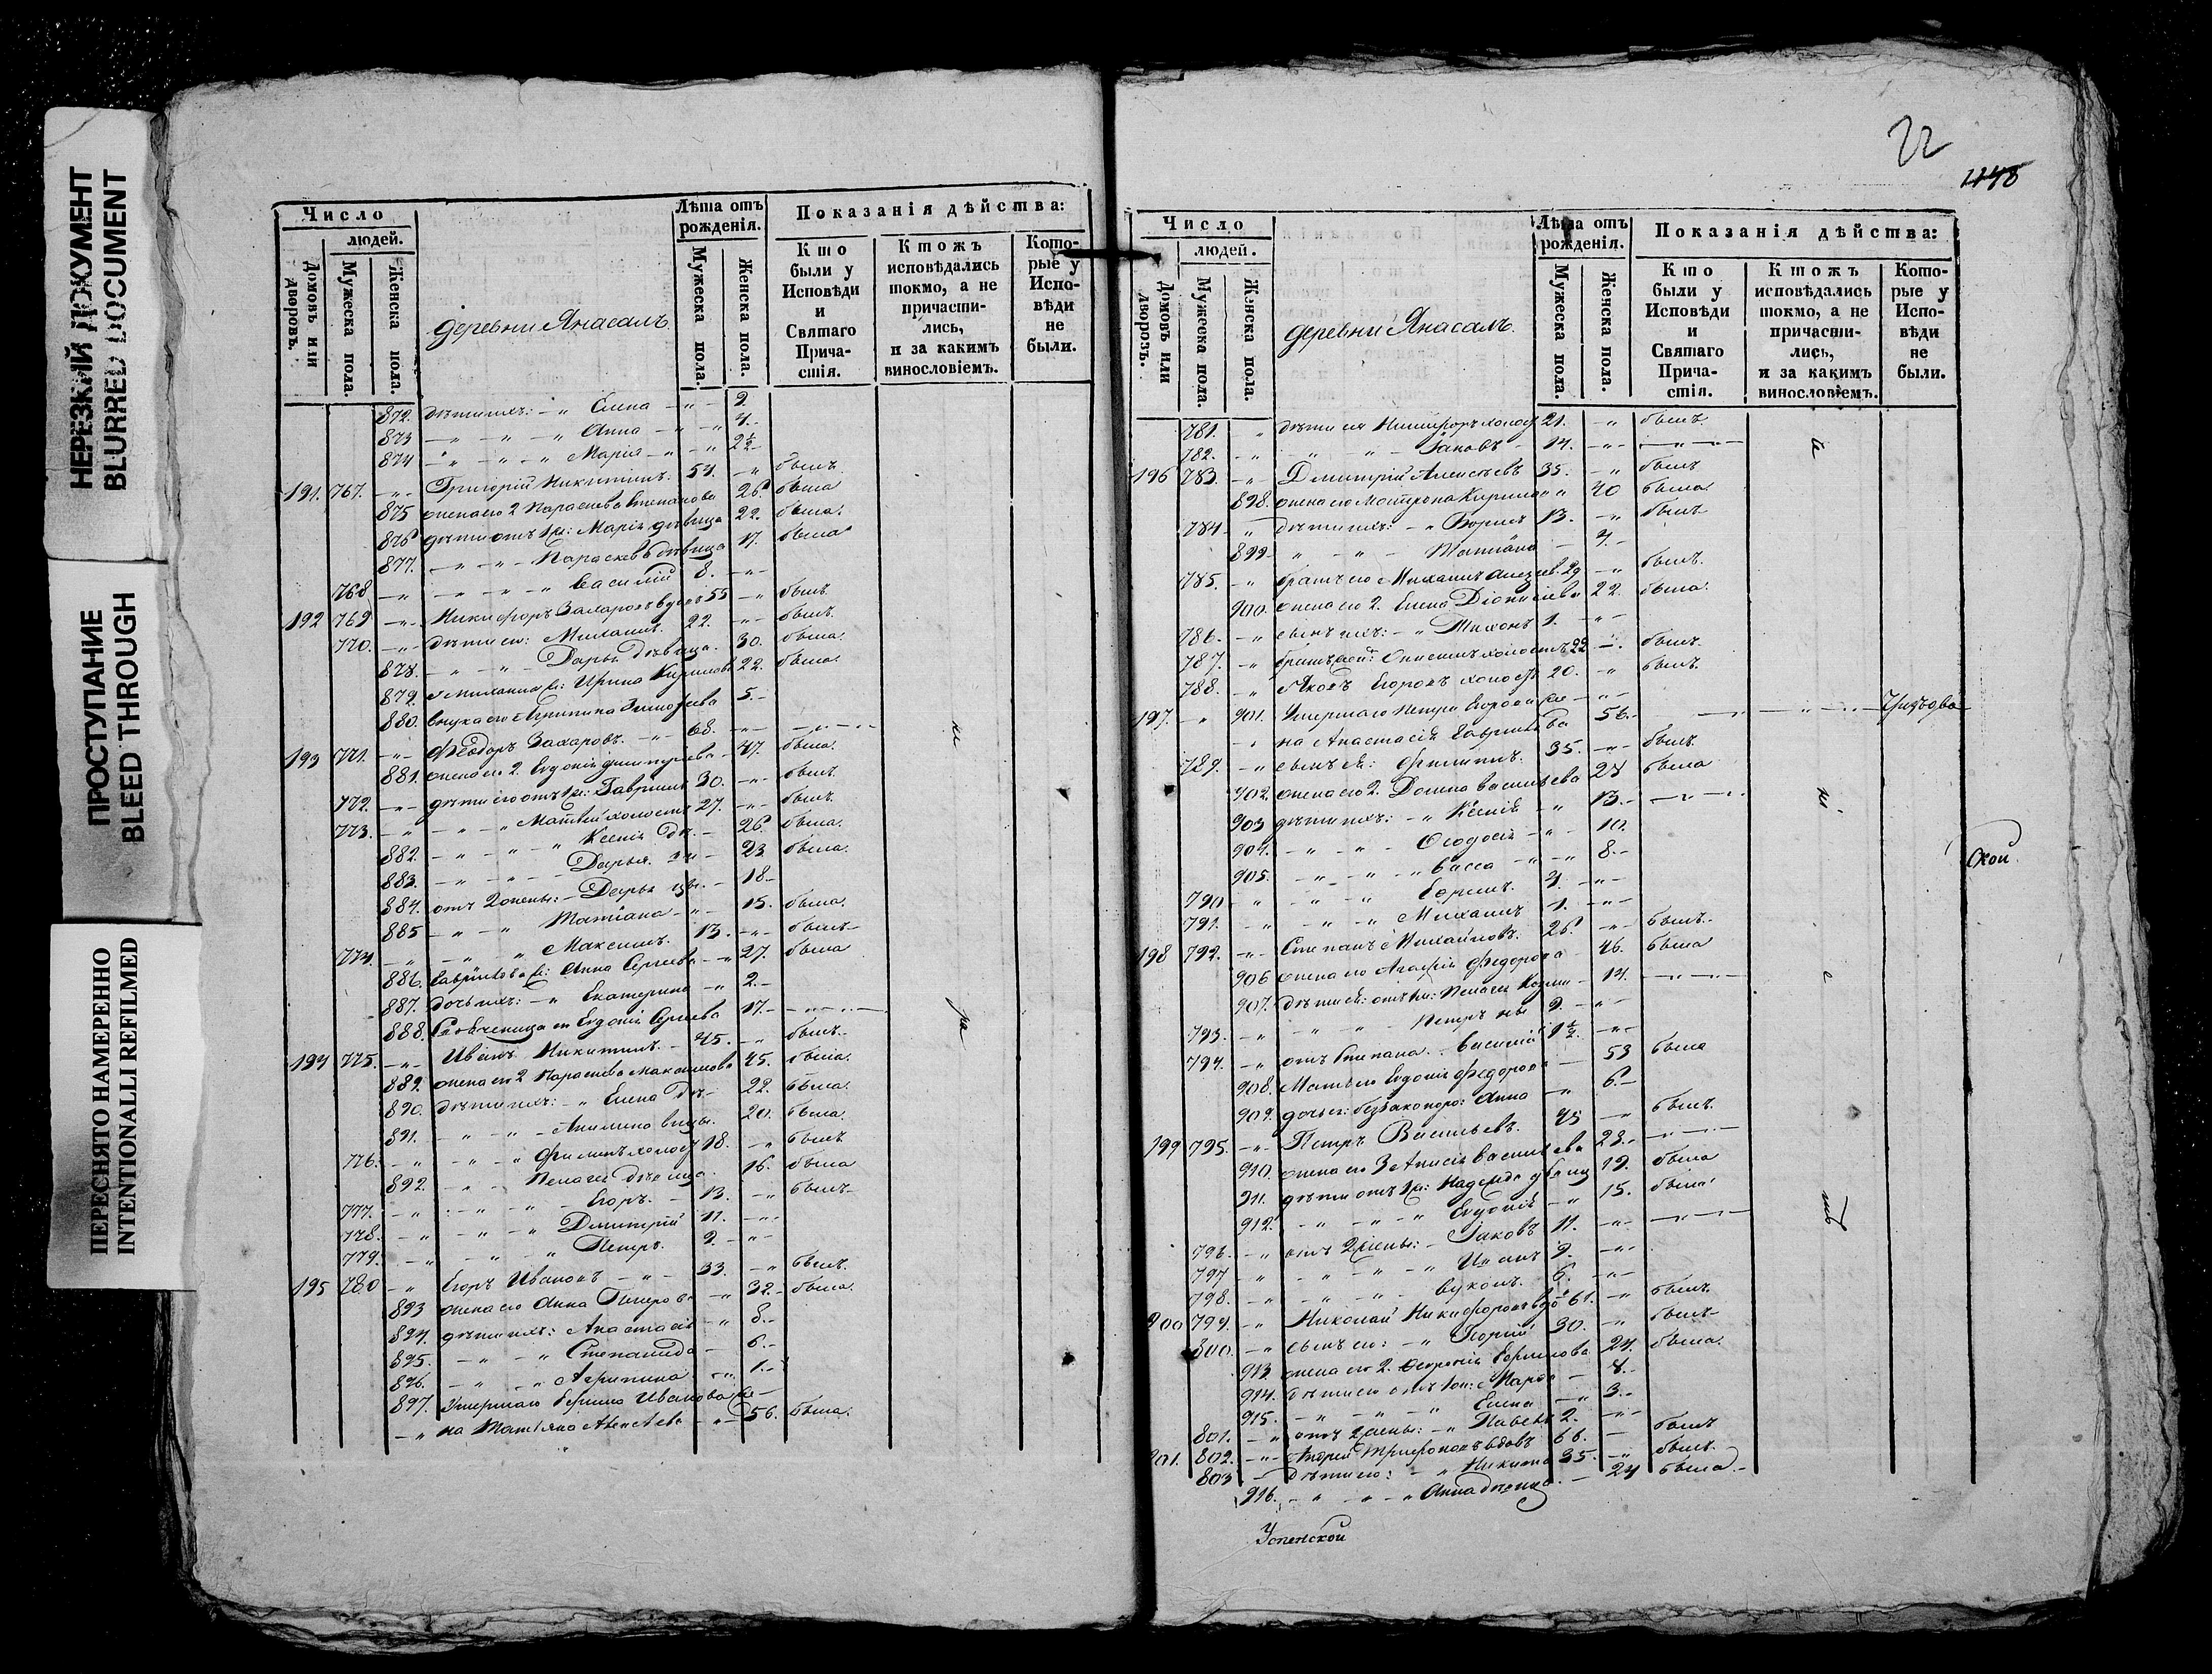 НЕРЕЗКИЙ ДОКУМЕНТ
BLURRED DOCUMENT
ПРОСТУПАНИЕ
BLEED THROUGH
ПЕРЕСНЯТО НАМЕРЕННО
INTENTIONALLI REFILMED
Число
людей.
Домовъ или дворовъ.
Мужеска пола.
Женска пола.
деревни Янасалъ
Лѣта отъ рожденія.
Мужеска пола.
Женска пола.
Показанія дѣйства:
Кто были у Исповѣди и Святаго Причастія.
Ктожъ исповѣдались токмо, а не причастились, и за какимъ винословіемъ.
Которые у Исповѣди не были.
872. дѣти ихъ: Елена 9
873 Анна 4
874 Марія 2½
191. 767. Григорій Никитинъ. 54. былъ
875 жена его 2 Параскева Степанова 26 была
876 дѣти отъ 1 ж: Марія дѣвица 22. была.
877. Параскева дѣвица 17. была
768 Василій 8.
192 769 Никифоръ Захаровъ вдовъ 55 былъ
770. дѣти его: Михаилъ. 22. былъ
878. Дарья дѣвица. 30. была.
879. Михаила ж: Ирина Кирилова 22. была.
880. внука его Агрипина Тимофеева 5.
193 771. Ѳеодоръ Захаровъ. 68.
881. жена его 2. Евдокія 47. была.
772. дѣти его отъ 1 ж: Гавріилъ 30. былъ
773. Матвѣй холостъ 27. былъ
882. Ксенія дѣ. 26 была.
883. Дарья 23 была.
884. отъ 2 жены: Дарья 18.
885 Татіана 15. была.
774. Максимъ. 13. былъ
886. Гавріилова ж: Анна Сергеева 27. была
887. дочь ихъ: Екатерина 2.
888. Евдокія Сергеева 17.
194 775. Иванъ Никитинъ. 45. былъ
889. жена его 2 Параскева Максимова 45. была.
890. дѣти ихъ: Елена дѣ 22. была.
891. Акилина вицы. 20. была.
776. Филипъ холостъ 18. былъ
892. Пелагея дѣвица 16. была
777. Егоръ. 13. былъ
778. Димитрій 11.
779. Петръ. 9.
195 780 Егоръ Ивановъ 33. былъ
893 жена его Анна Петрова 32. была.
894. дѣти ихъ: Анастасія 8.
895. Степанида 6.
896. Агрипина 1.
897. Умершаго Ефима Иванова же
на Татіана Алексѣева 56. была.
не
ра
22
1148
Число
людей.
Домовъ или дворовъ.
Мужеска пола.
Женска пола.
деревни Янасалъ.
Лѣта отъ рожденія.
Мужеска пола.
Женска пола.
Показанія дѣйства:
Кто были у Исповѣди и Святаго Причастія.
Ктожъ исповѣдались токмо, а не причастились, и за какимъ винословіемъ.
Которые у Исповѣди не были.
781. дѣти ея Никифоръ холост 21. былъ
782. Іаковъ 14.
196 783. Димитрій Алексѣевъ 35. былъ
898. жена его Матрона Кирилова 40 была.
784. дѣти ихъ: Борисъ 13. былъ
899. Татіана 4.
785. братъ его Михаилъ 29 былъ.
900. жена его 2. Елена Діонисіева 22. была.
786. сынъ ихъ: Тихонъ 1.
787. братъ Онисимъ холостъ 22 былъ.
788. Яковъ Егоровъ холост 20. былъ.
197. 901. Умершаго Петра Егорова же
на Анастасія Гаврилова 56.
789. сынъ ея: Филипъ. 35. былъ.
902. жена его 2. Домна Васильева 27 была
903 дѣти ихъ: Ксенія 13.
904. Ѳеодосія 10.
905. Васса 8.
790 Ефимъ. 4.
791. Михаилъ 1.
198 792. Степанъ Михайловъ. 26. былъ.
906 жена его Агафія Федорова 46. была
907. дѣти ея: отъ 1 м: Пелагея 14.
793. Петръ 9.
794. отъ Степана. Василій 1½.
908. Мать его Евдокія Федорова 53 была
909. дочь ея: беззаконоро: Анна 6.
199 795. Петръ Васильевъ. 45 былъ.
910. жена его 3 Анисія Васильева 28.
911. дѣти отъ 1 ж: Надежда дѣвиц 19. была
912. Евдокія 15. была
796. отъ 2 жены: Іаковъ 11.
797 Иванъ 9.
798. Вуколъ. 6.
200 799. Николай Никифоровъ вдо 61. былъ
800. сынъ его: Георгій 30. былъ
913 жена его 2. Ефимова 24. была.
914. дѣти его отъ 1 ж: Марѳа 4.
915. Елена 3.
801. отъ 2 жены: Павелъ 2.
201. 802. Андрей Трифоновъ вдовъ 66. былъ
803 дѣти его: Никита 35. былъ.
916. Анна дѣвица. 24 была.
не
тъ
Успенской